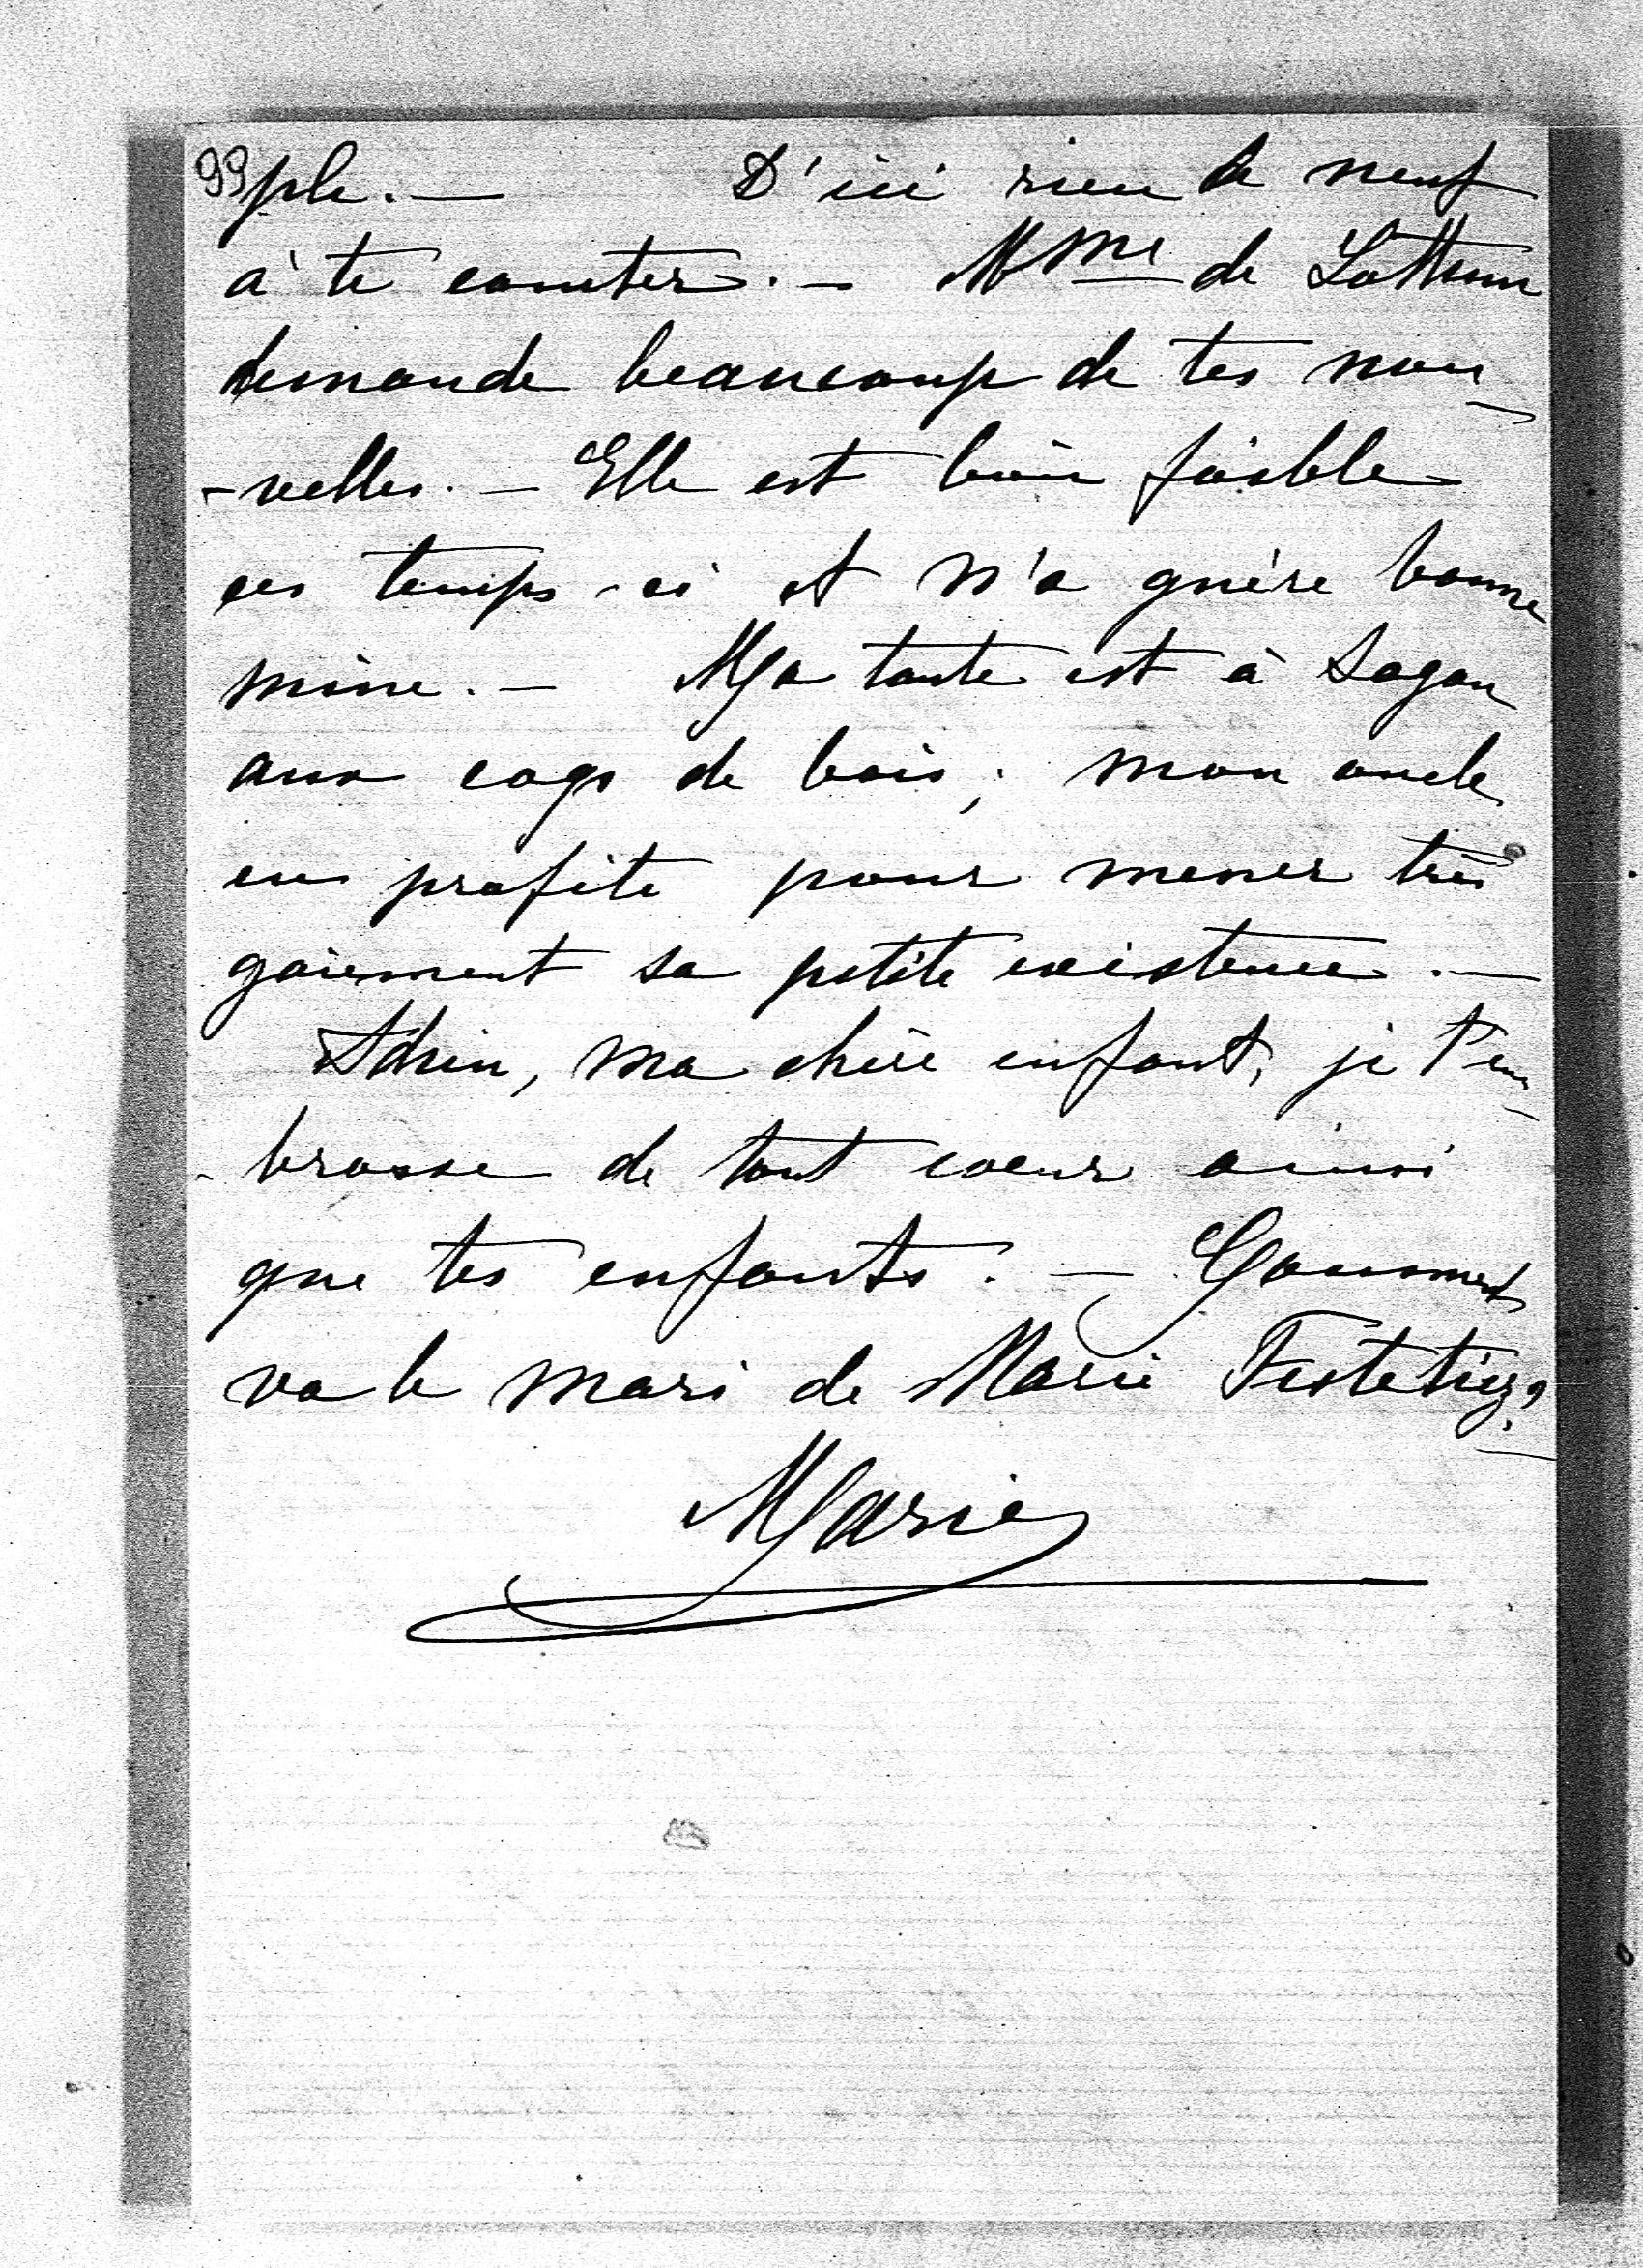 99 ple. — D'ici rien de neuf
à te conter. — Mme de Lottum
demande beaucoup de tes nou-
-velles. — Elle est bien faible
ces temps-ci et n'a guère bonne
mine. — Ma tante est à Sagan
aux coqs de bois; mon oncle
en profite pour mener très
gaiement sa petite existence. —
Adieu, ma chère enfant, je t'em-
-brasse de tout coeur ainsi
que tes enfants. — Comment
va le mari de Marie Festetiez?
Marie